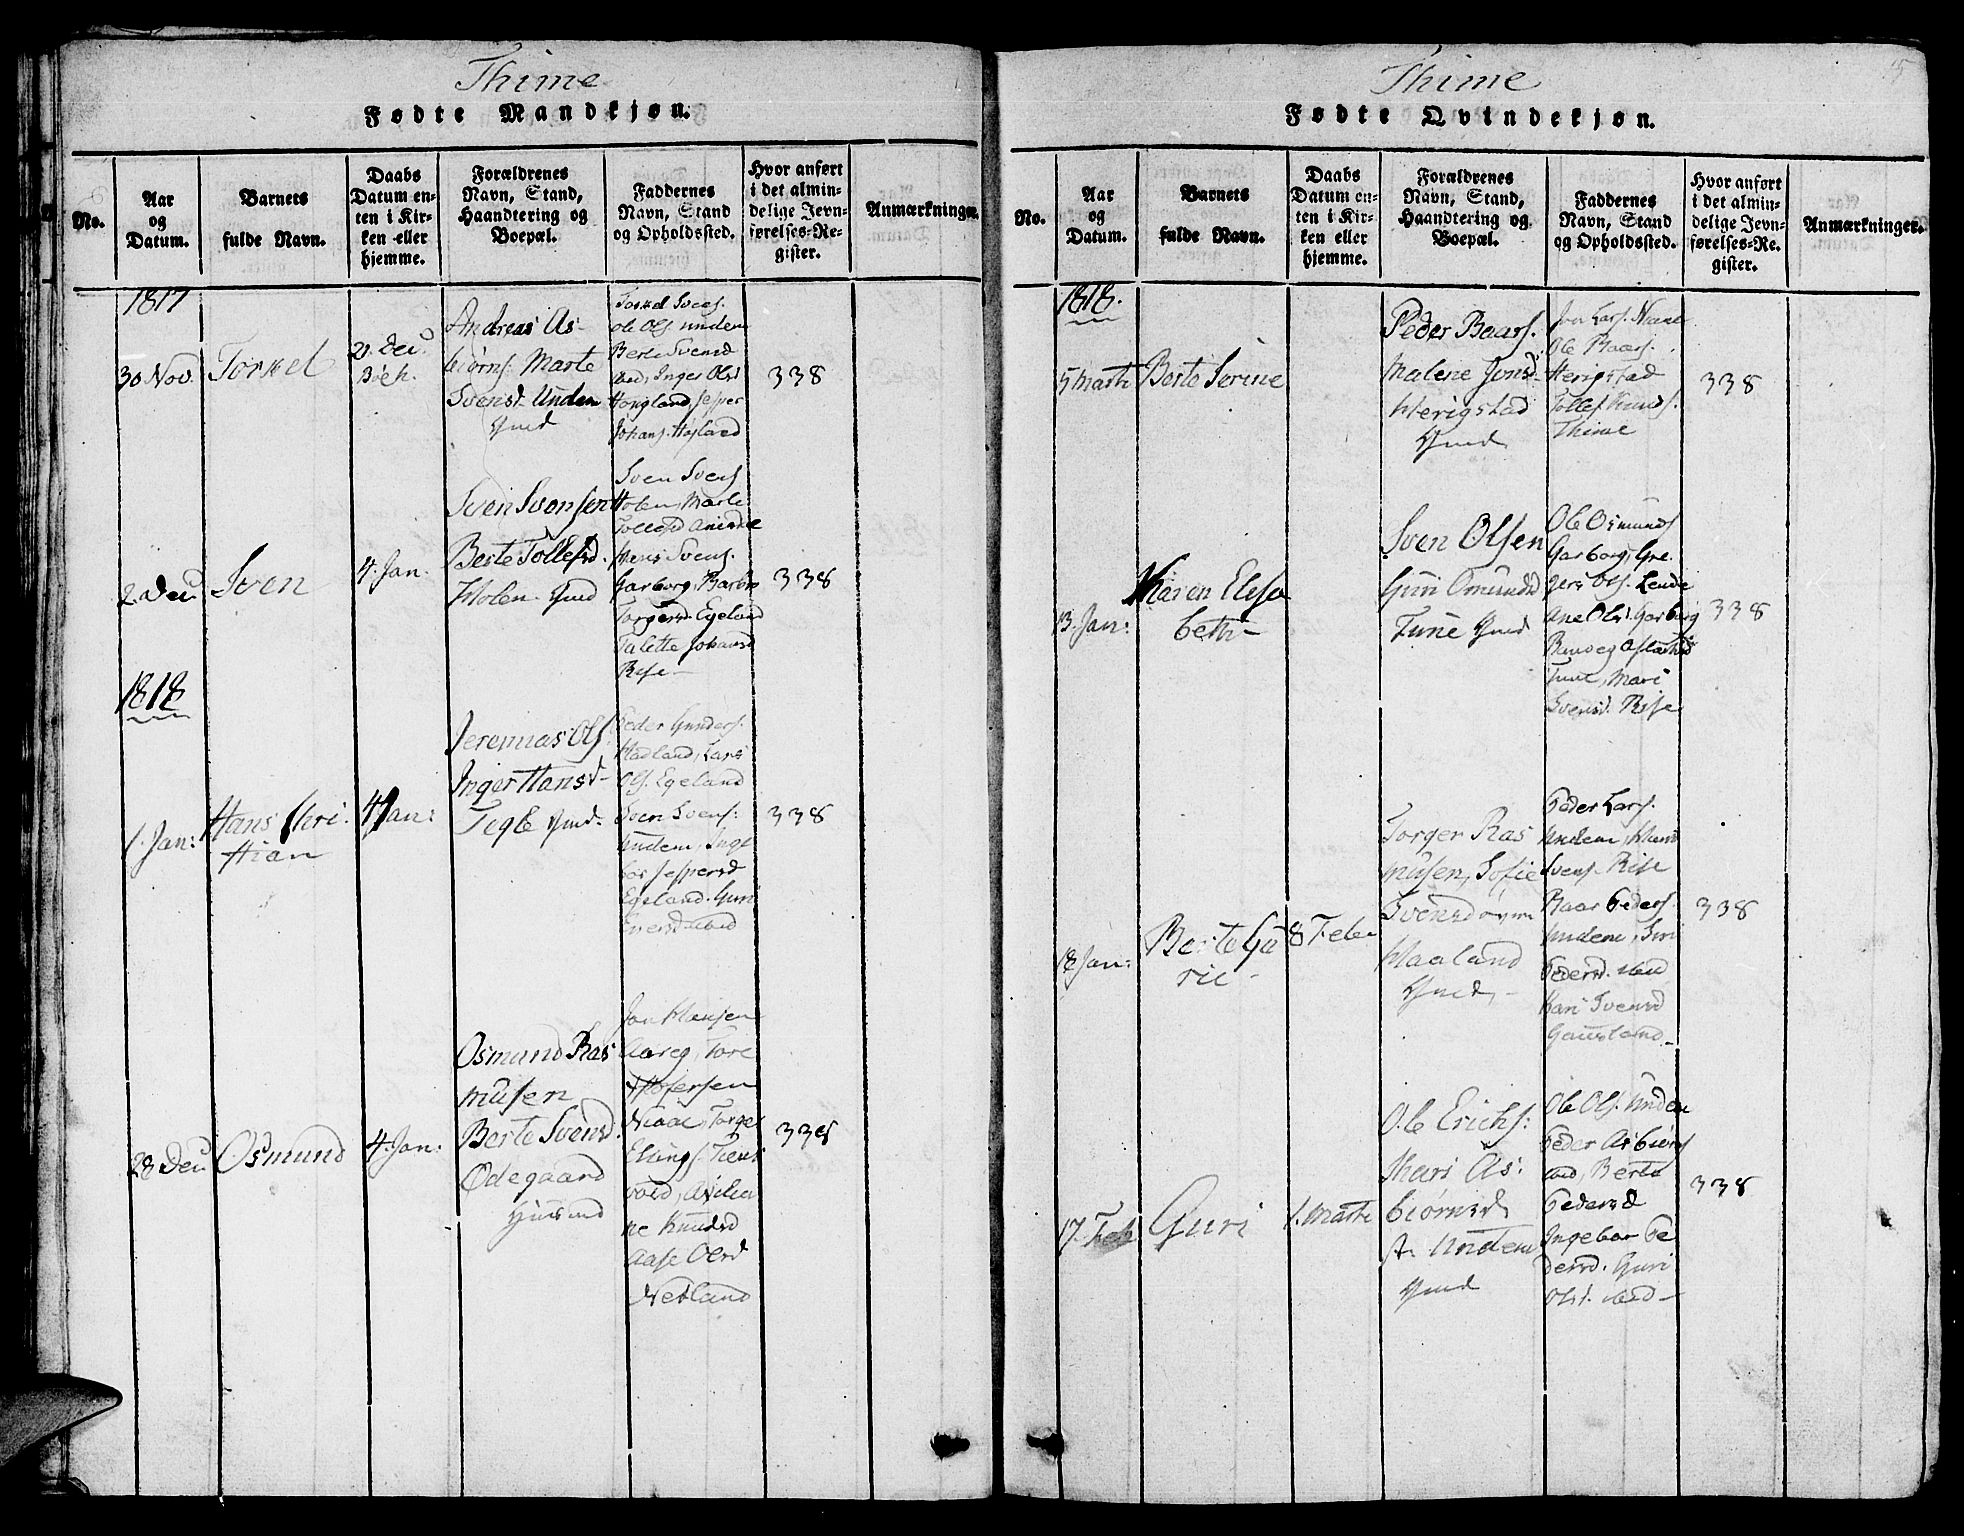 Thime
Fødte Mandkjøn.
No.
Aar
og
Datum.
Barnets
fulde Navn.
Daabs
Datum en-
ten i Kir-
ken eller
hjemme.
Forældrenes
Navn, Stand,
Haandtering og
Boepæl.
Faddernes
Navn, Stand
og Opholdssted.
Hvor anført
i det almin-
delige Jevn-
førelses-Re-
gister.
Anmærkninger.
1817
30 Nov.
Torkel
21. Dec.
Andreas As-
biørns. Marte
Svensd. Unden
Torkel Svens.
Ole Ols. unden
Berte Svensd
Inger Olsd
Hougland, Jesper
Johans. Hogland
338
2. Dec
Sven
4. Jan.
Sven Svensen
Berte Tollefsd.
Holen
Sven Svens
Holen, Marte
Tollefsd
Hans Svens.
Garborg, Barbro
Torgersd. Egeland
Talette Johansd
Rise
338
1818
1. Jan:
Hans Chri-
stian
4 Jan:
Jeremias Ols.
Inger Hansd-
Tegle
Peder Gunders.
Hadland, Lars
Ols. Egeland
Sven Svens:
Undem, Inge
bor Jespersd
Egeland. Guri
338
28 Dec
Osmund
4. Jan:
Osmund Ras
musen
Berte Svensd.
Ødegaard
Jon Hansen
Aareg, Tore
Niaae, Torger
Elings. Tiens
vold, Axelia
ne Knudsd
Aase Olsd
Netland
338
Thime
15
Fødte Qvindekjøn.
No.
Aar
og
Datum.
Barnets
fulde Navn.
Daabs
Datum en-
ten i Kir-
ken eller
hjemme.
Forældrenes
Navn, Stand,
Haandtering og
Boepæl.
Faddernes
Navn, Stand
og Opholdssted.
Hvor anført
i det almin-
delige Jevn-
førelses-Re-
gister.
Anmærkninger.
1818.
5 Marti
Berte Serine
Peder Baars.
Malene Jonsd-
Herigstad
Jon Lars. Niaae
Ole Baars.
Herigstad
Tollef Knuds.
Thime
338
13. Jan:
Karen Elisa
beth-
Sven Olsen
Guri Omundsd
Tune
Ole Osmunds
Garborg, Gre
gers Ols. Lende
Ane Olsd. Garborg
Tune, Mari
Svensd. Rise
338
18 Jan:
Berte Gu
rie -
8 Feb
Torger Ras
musen, Sofie
Svensd
Haaland
Peder Lars.
Undem, Hans
Svens. Rise
Baar Peders.
Undem, Siri
Pedersd.
Kari Svensd
Gausland
338
17. Feb
Guri
1. Marti
Ole Erichs:
Kari As:
biørnsd
Undem
Ole Ols. Unden
Peder Asbiørns
Berte
Pedersd
Ingebor Pe
dersd. Guri
Olsd.
338